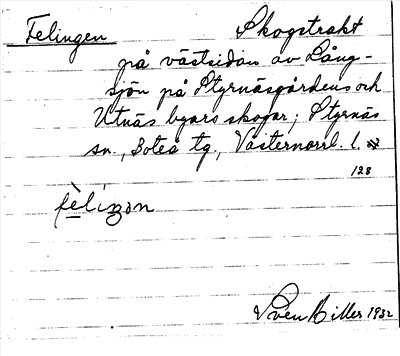 Felingen Skogstrakt
på västsidan av Lång-
sjön på Styrnäsgårdens och
Utnäs byars skogar; Styrnäs
sn., Boteå tg., Västernorrl. l.
128
fèliŋən
Sven Hiller 1932